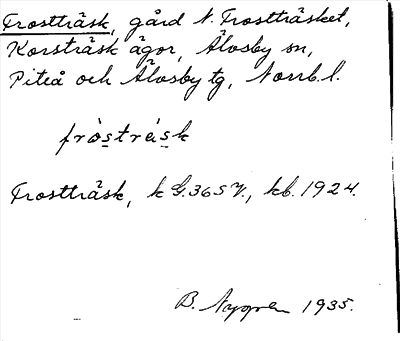 Frostträsk, gård N. Frostträsket,
Korsträsk ägor, Älvsby sn,
Piteå och Älvsby tg, Norrb. l.
fròsträsk
Frostträsk, k G. 365 V., kb. 1924.
B. 1935.